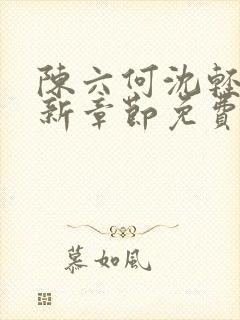 陳六何沈輕
新章節免費
慕如風